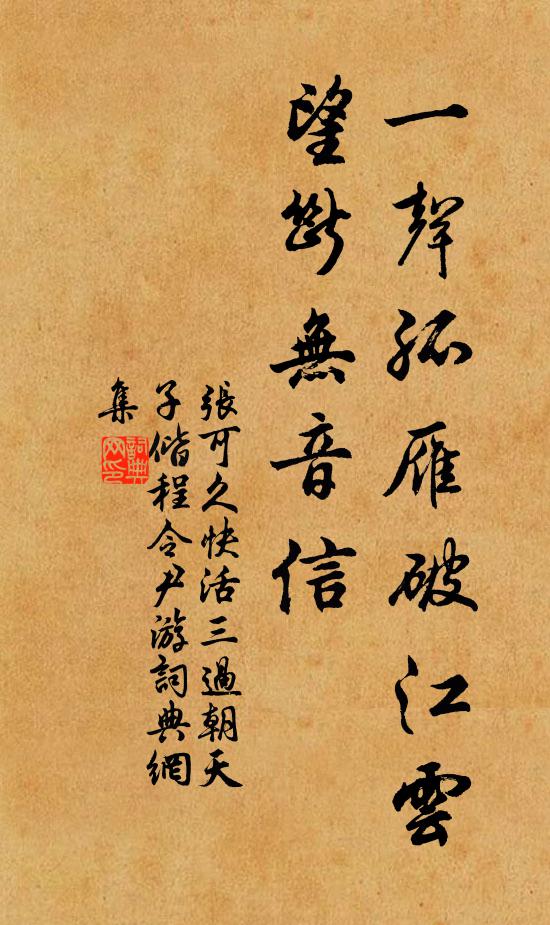 一聲孤雁破江雲
望斷無音信
張可久快活三過朝天
子偕程令尹游詞典網
集
詞典
网印